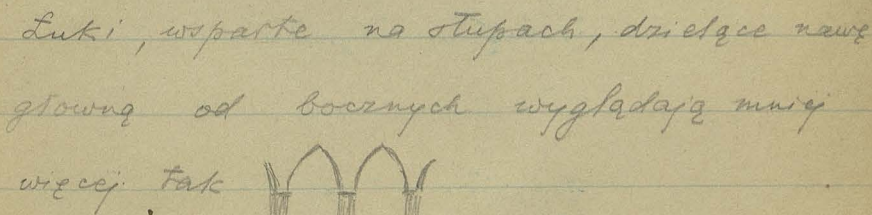 Łuki, wsparte na słupach, dzielące nawę
głowną od bocznych wyglądają mniej
więcej tak